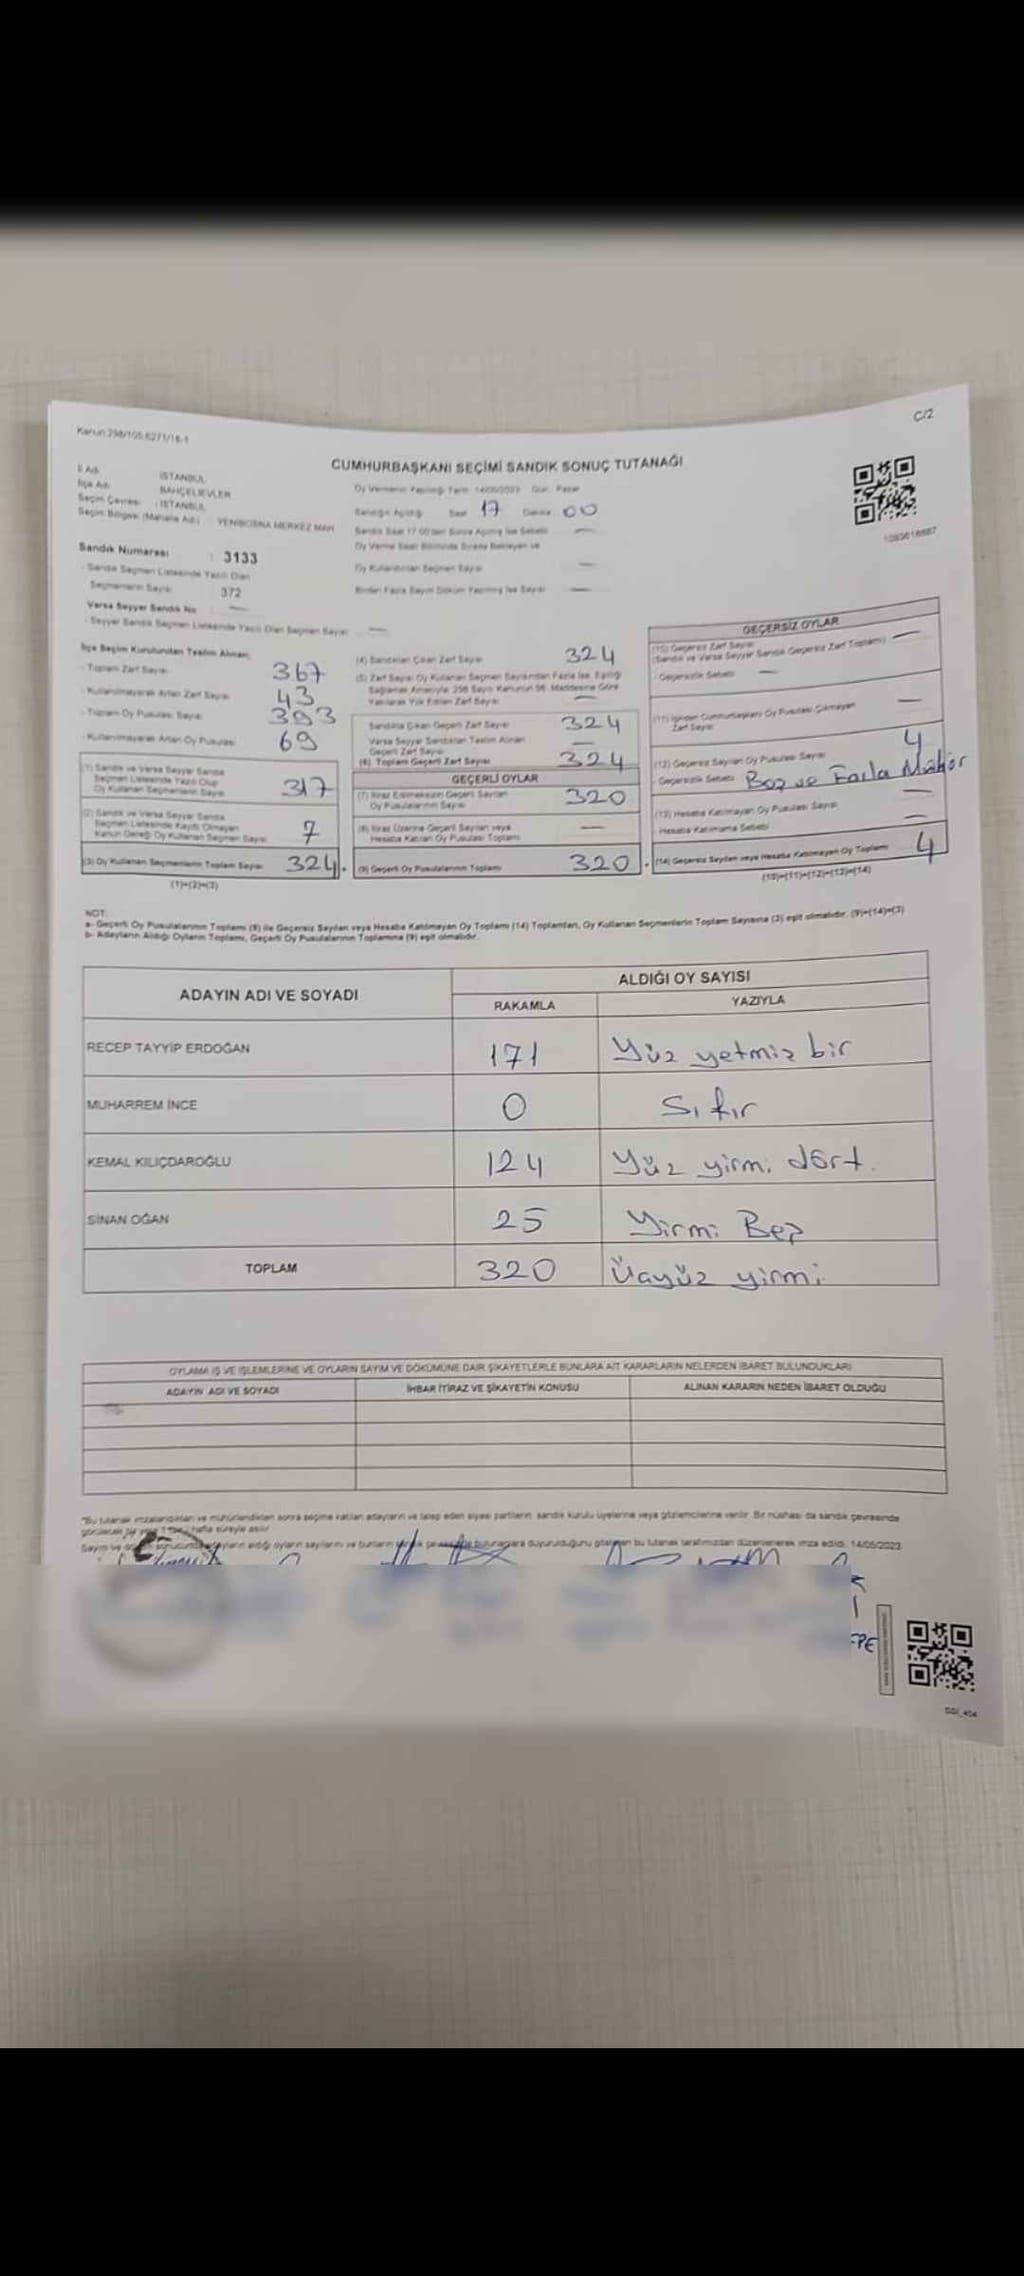 C/2
Kanun:298/105,6271/18-1
CUMHURBAŞKANI SEÇİMİ SANDIK SONUÇ TUTANAĞI
İl Adı : İSTANBUL
İlçe Adı : BAHÇELİEVLER
Seçim Çevresi : İSTANBUL
Seçim Bölgesi (Mahalle Adı) : YENİBOSNA MERKEZ MAH
Oy Vermenin Yapıldığı Tarih: 14/05/2023 Gün: Pazar
Sandığın Açıldığı Saat 17 Dakika 00
Sandık Saat 17.00'den Sonra Açılmış İse Sebebi —
Oy Verme Saati Bitiminde Sırada Bekleyen ve
Oy Kullandırılan Seçmen Sayısı —
Birden Fazla Sayım Döküm Yapılmış İse Sayısı —
Sandık Numarası : 3133
- Sandık Seçmen Listesinde Yazılı Olan
Seçmenlerin Sayısı 372
Varsa Seyyar Sandık No —
- Seyyar Sandık Seçmen Listesinde Yazılı Olan Seçmen Sayısı —
İlçe Seçim Kurulundan Teslim Alınan;
- Toplam Zarf Sayısı 367
- Kullanılmayarak Artan Zarf Sayısı 43
- Toplam Oy Pusulası Sayısı 393
- Kullanılmayarak Artan Oy Pusulası 69
(1) Sandık ve Varsa Seyyar Sandık
Seçmen Listesinde Yazılı Olup
Oy Kullanan Seçmenlerin Sayısı 317
(2) Sandık ve Varsa Seyyar Sandık
Seçmen Listesinde Kaydı Olmayan
Kanun Gereği Oy Kullanan Seçmen Sayısı 7
(3) Oy Kullanan Seçmenlerin Toplam Sayısı 324
(1)+(2)=(3)
(4) Sandıktan Çıkan Zarf Sayısı 324
(5) Zarf Sayısı Oy Kullanan Seçmen Sayısından Fazla İse, Eşitliği
Sağlamak Amacıyla; 298 Sayılı Kanunun 98. Maddesine Göre
Yakılarak Yok Edilen Zarf Sayısı —
Sandıkta Çıkan Geçerli Zarf Sayısı 324
Varsa Seyyar Sandıktan Teslim Alınan
Geçerli Zarf Sayısı —
(6) Toplam Geçerli Zarf Sayısı 324
GEÇERLİ OYLAR
(7) İtiraz Edilmeksizin Geçerli Sayılan
Oy Pusulalarının Sayısı 320
(8) İtiraz Üzerine Geçerli Sayılan veya
Hesaba Katılan Oy Pusulaları Toplamı —
(9) Geçerli Oy Pusulalarının Toplamı 320
GEÇERSİZ OYLAR
(10) Geçersiz Zarf Sayısı
(Sandık ve Varsa Seyyar Sandık Geçersiz Zarf Toplamı) —
- Geçersizlik Sebebi —
(11) İçinden Cumhurbaşkanı Oy Pusulası Çıkmayan
Zarf Sayısı —
(12) Geçersiz Sayılan Oy Pusulası Sayısı 4
- Geçersizlik Sebebi Boş ve Fazla Mühür
(13) Hesaba Katılmayan Oy Pusulası Sayısı —
- Hesaba Katılmama Sebebi —
(14) Geçersiz Sayılan veya Hesaba Katılmayan Oy Toplamı 4
(10)+(11)+(12)+(13)=(14)
NOT:
a- Geçerli Oy Pusulalarının Toplamı (9) ile Geçersiz Sayılan veya Hesaba Katılmayan Oy Toplamı (14) Toplamları, Oy Kullanan Seçmenlerin Toplam Sayısına (3) eşit olmalıdır. (9)+(14)=(3)
b- Adayların Aldığı Oyların Toplamı, Geçerli Oy Pusulalarının Toplamına (9) eşit olmalıdır.
ADAYIN ADI VE SOYADI ALDIĞI OY SAYISI
RAKAMLA YAZIYLA
RECEP TAYYİP ERDOĞAN 171 Yüz yetmiş bir
MUHARREM İNCE 0 Sıfır
KEMAL KILIÇDAROĞLU 124 Yüz yirmi dört.
SİNAN OĞAN 25 Yirmi Beş
TOPLAM 320 Üçyüz yirmi
OYLAMA İŞ VE İŞLEMLERİNE VE OYLARIN SAYIM VE DÖKÜMÜNE DAİR ŞİKAYETLERLE BUNLARA AİT KARARLARIN NELERDEN İBARET BULUNDUKLARI
ADAYIN ADI VE SOYADI İHBAR İTİRAZ VE ŞİKAYETİN KONUSU ALINAN KARARIN NEDEN İBARET OLDUĞU
*Bu tutanak imzalandıktan ve mühürlendikten sonra seçime katılan adayların ve talep eden siyasi partilerin sandık kurulu üyelerine veya gözlemcilerine verilir. Bir nüshası da sandık çevresinde
görülecek bir yere 1 (bir) hafta süreyle asılır.
Sayım ve döküm sonucunda adayların aldığı oyların sayılarını ve bunların sandık çevresinde bulunanlara duyurulduğunu gösteren bu tutanak tarafımızdan düzenlenerek imza edildi. 14/05/2023